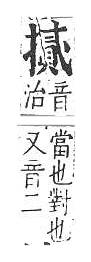 音
治
當也對也
又音二